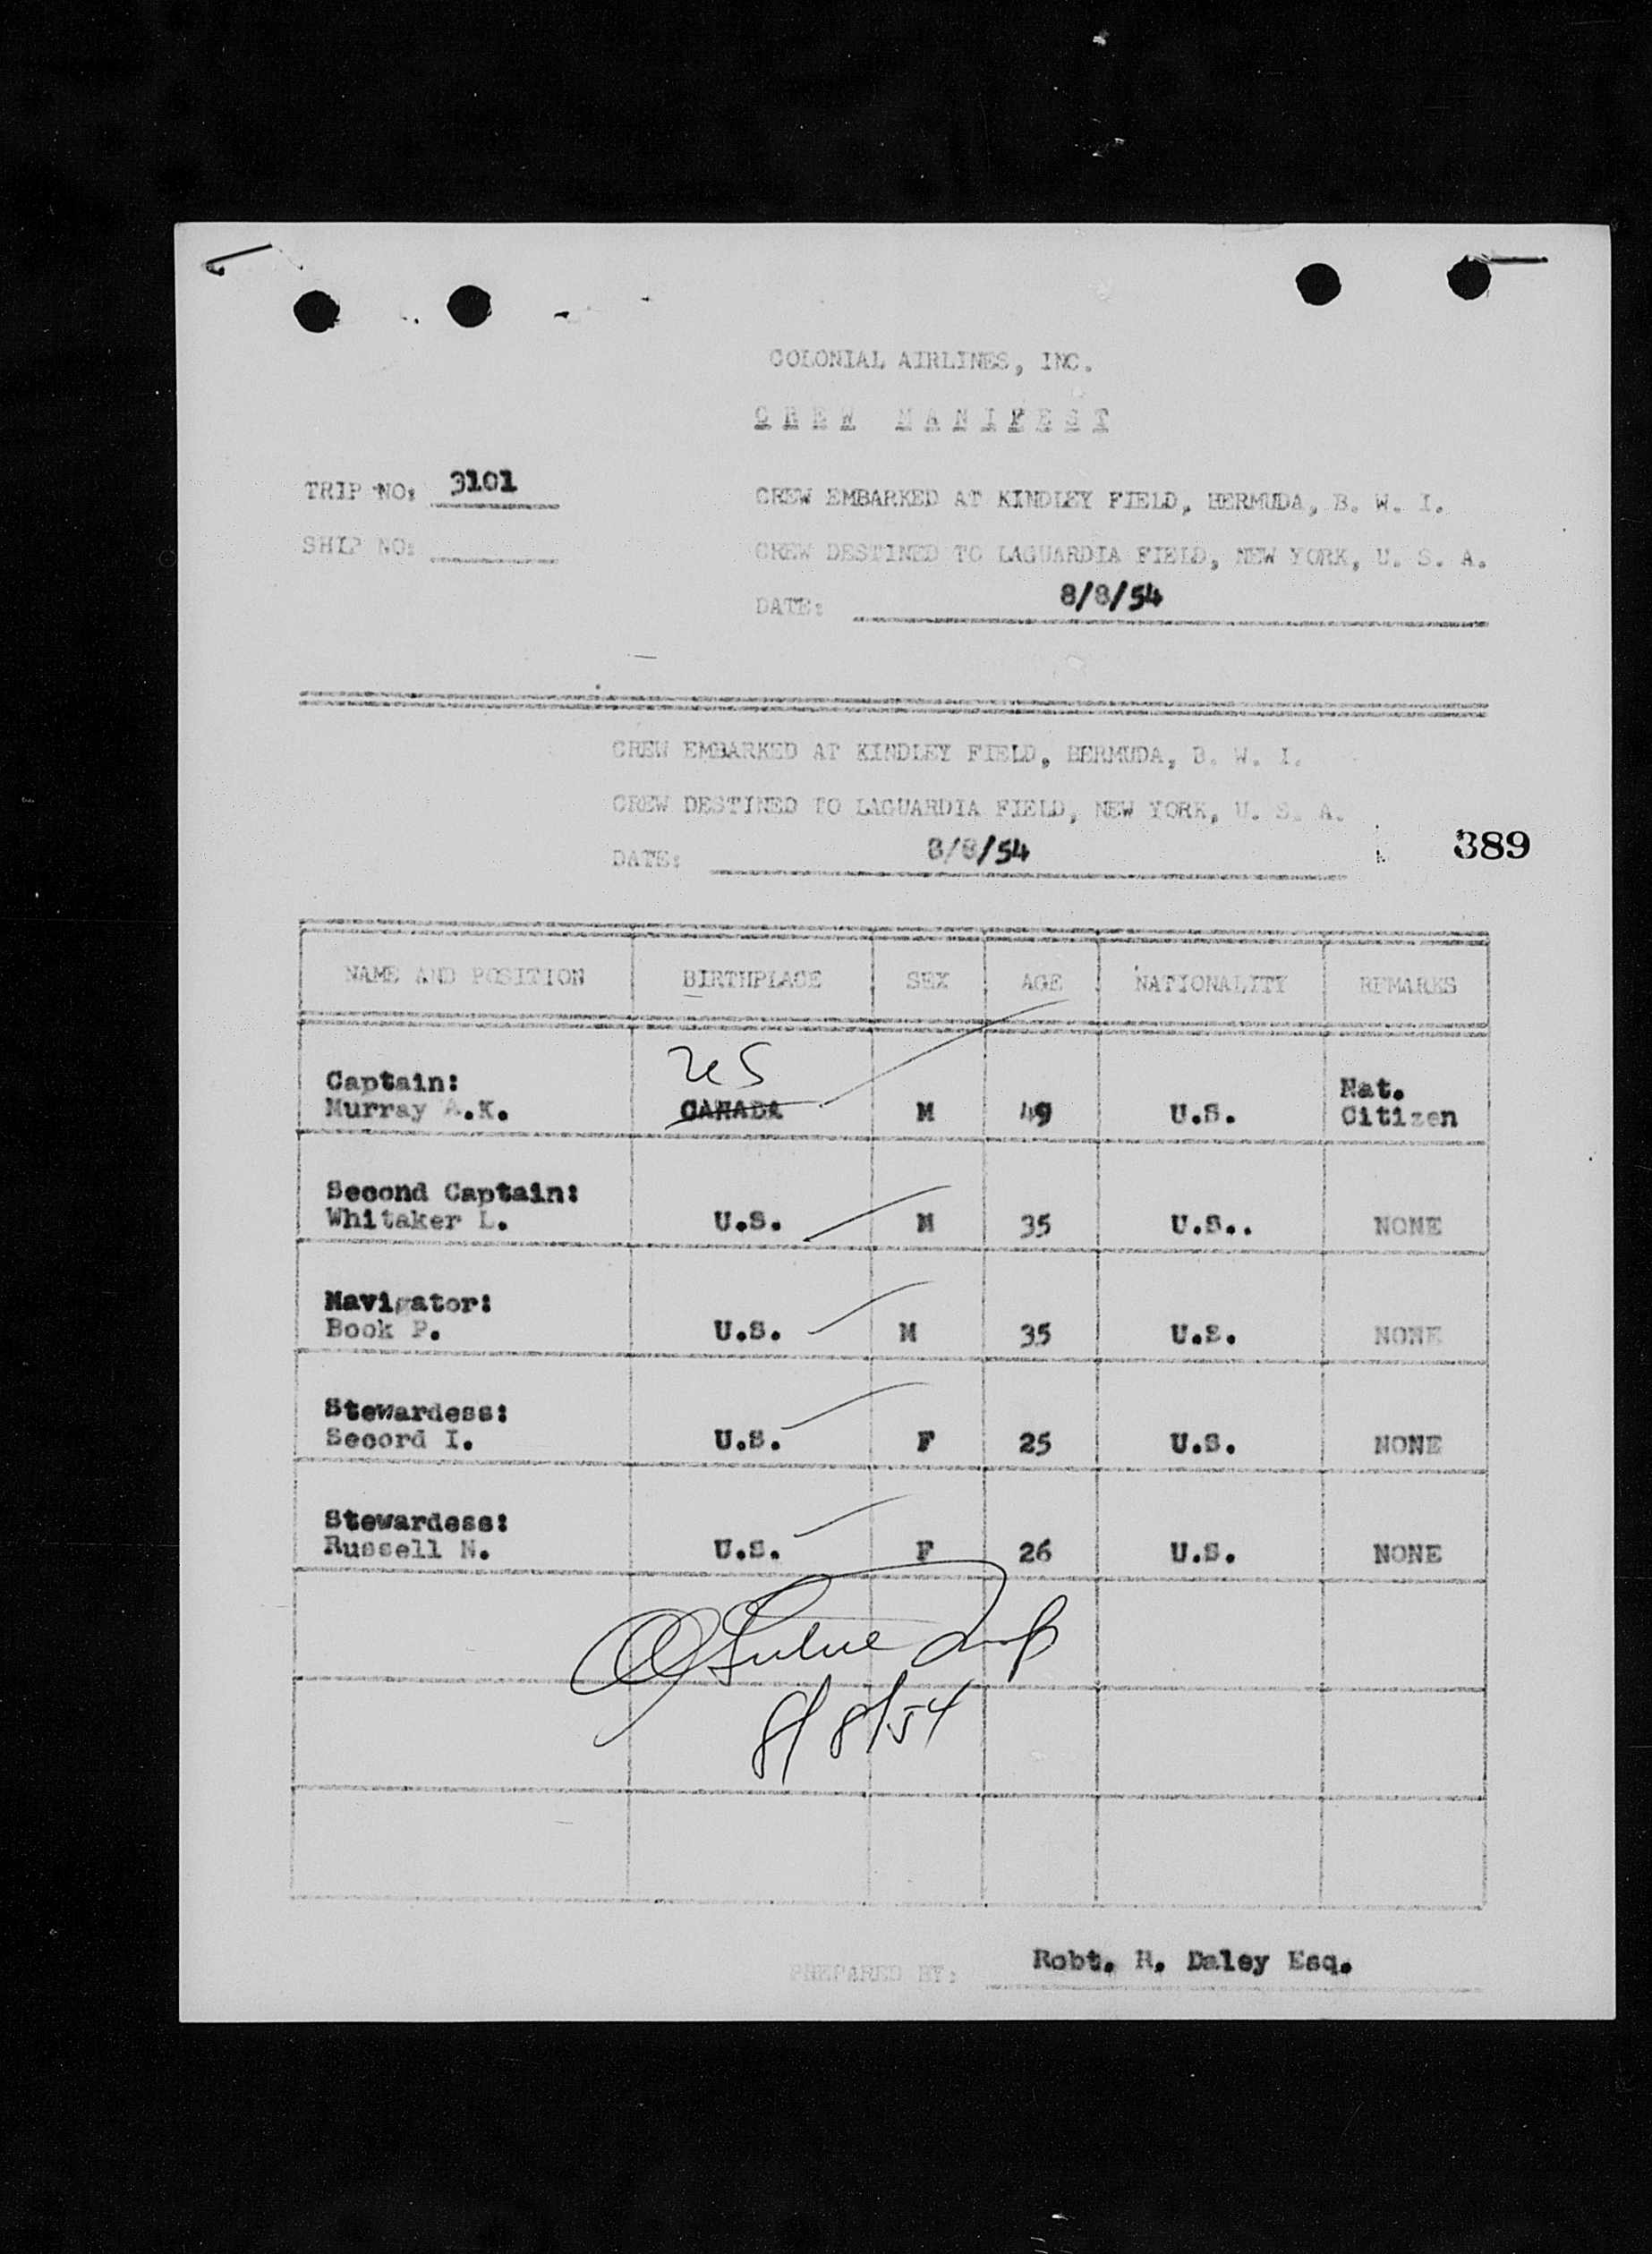 COLONIAL AIRLINES, INC.
CREW MANIFEST
TRIP NO: 3101
CREW EMBARKED AT KINDLEY FIELD, BERMUDA, B. W. I.
SHIP NO:
CREW DESTINED TO LAGUARDIA FIELD, NEW YORK, U. S. A.
DATE: 8/8/54
CREW EMBARKED AT KINDLEY FIELD, BERMUDA, B. W. I.
CREW DESTINED TO LAGUARDIA FIELD, NEW YORK, U. S. A.
DATE: 8/8/54
389
NAME AND POSITION BIRTHPLACE SEX AGE NATIONALITY REMARKS
US
Captain: Nat.
Murray A.K. CANADA M 49 U.S. Citizen
Second Captain:
Whitaker L. U.S. M 35 U.S.. NONE
Navigator:
Book P. U.S. M 35 U.S. NONE
Stewardess:
Secord I. U.S. F 25 U.S. NONE
Stewardess:
Russell N. U.S. F 26 U.S. NONE
8/8/54
PREPARED BY: Robt. R. Daley Esq.